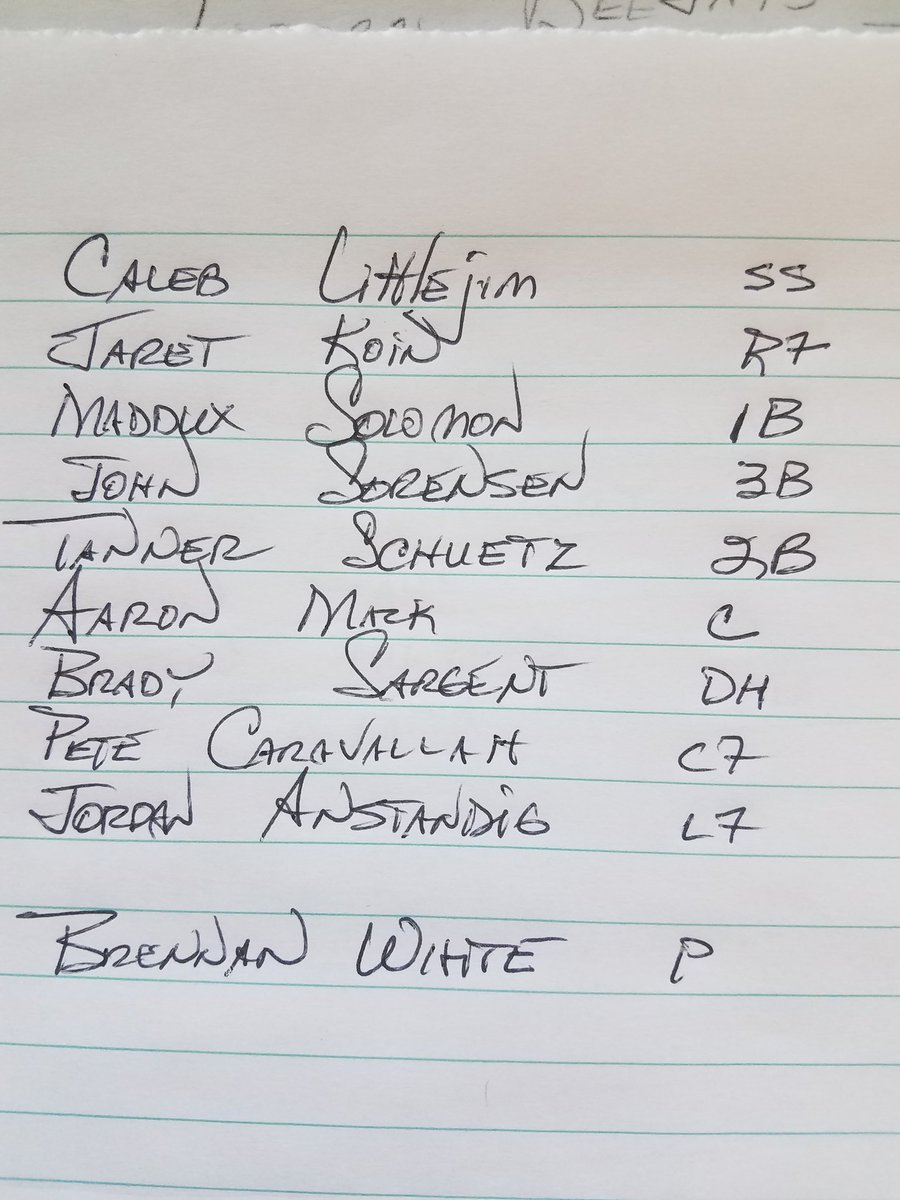 CALEB Littlejim SS
JARET KOIN RF
MADDUX SOLOMON 1B
JOHN SORENSEN 3B
TANNER SCHUETZ 2B
AARON MACK C
BRADY SARGENT DH
PETE CARAVALLAH CF
JORDAN ANSTANDIG LF
BRENNAN WIHTE P